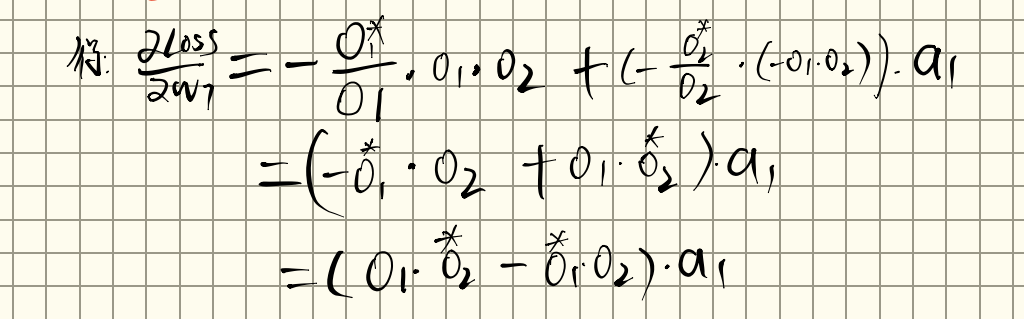 得: ∂Loss/∂w₇ = - o₁*/o₁ · o₁ · o₂ + (- o₂*/o₂ · (-o₁·o₂)) · a₁
= (-o₁* · o₂ + o₁ · o₂*) · a₁
= (o₁ · o₂* - o₁* · o₂) · a₁